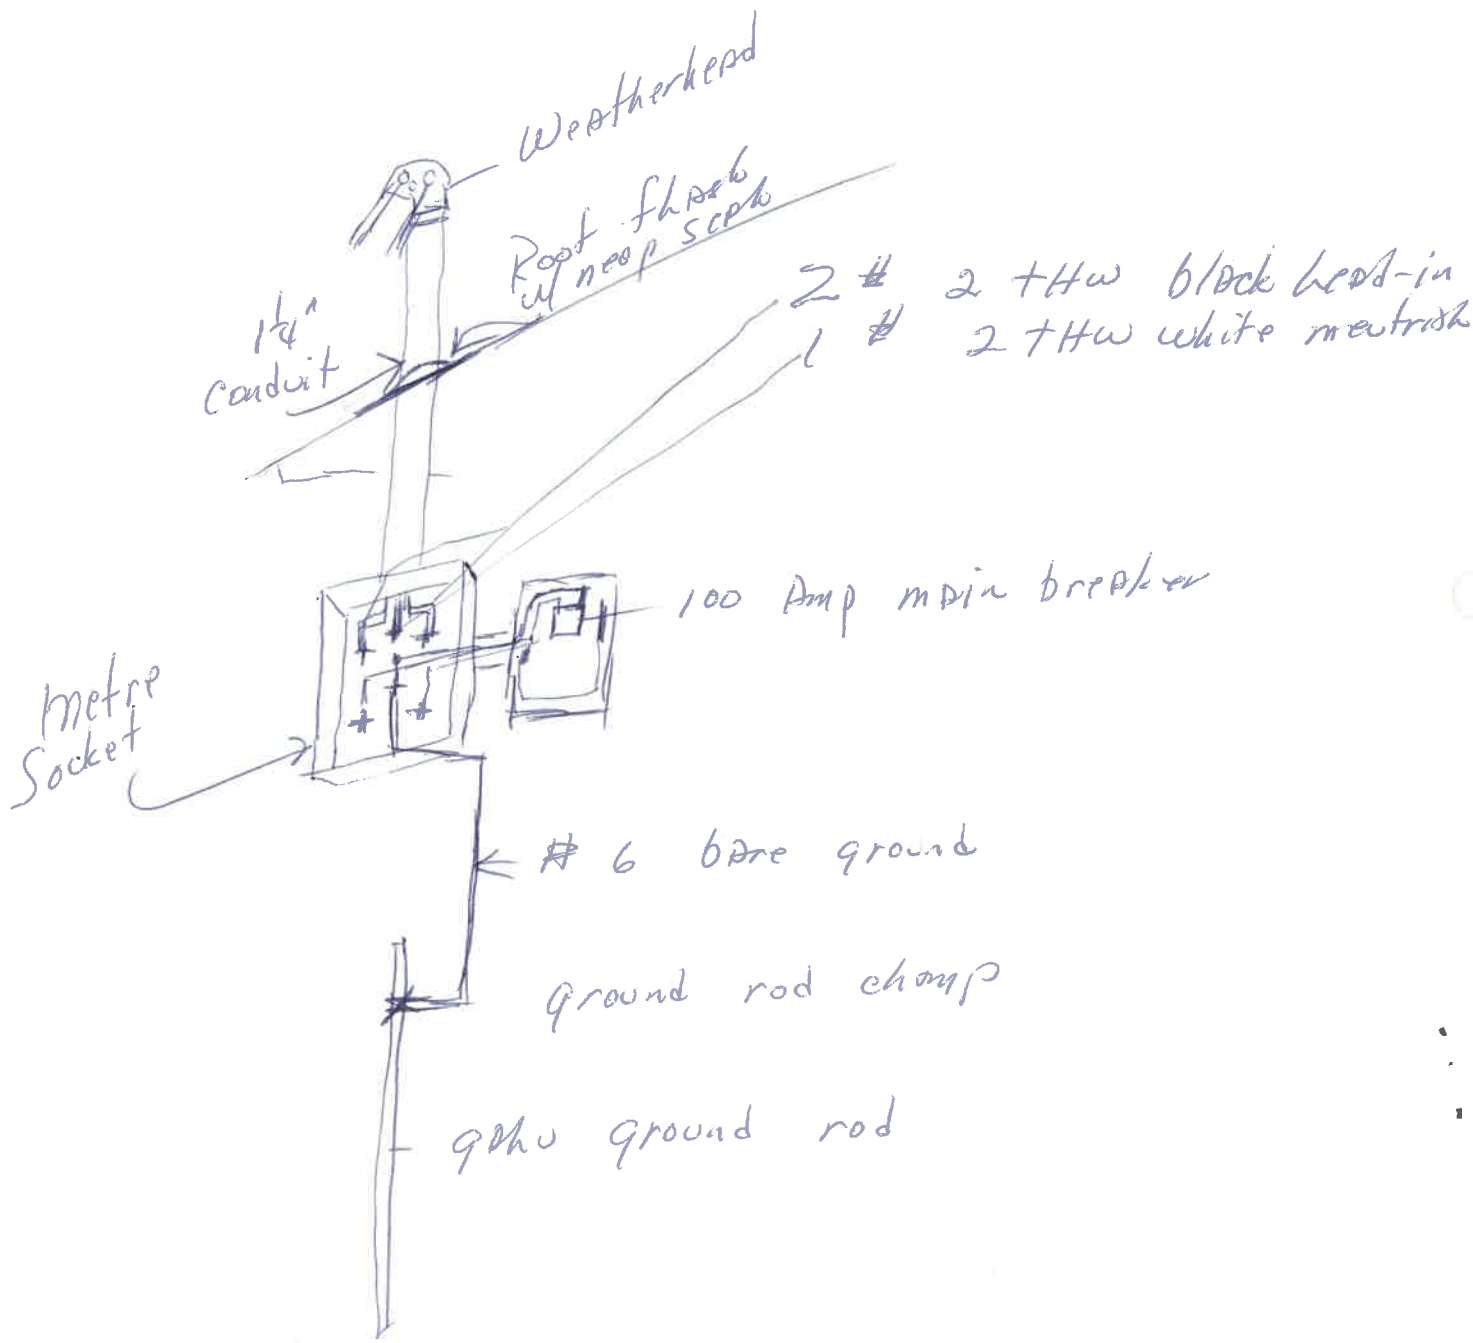 Weatherhead
Roof flash
w/ neop seal
1 1/4"
conduit
2 # 2 THW black lead-in
1 # 2 THW white neutral
100 Amp main breaker
Metre
Socket
# 6 bare ground
ground rod clamp
galv ground rod